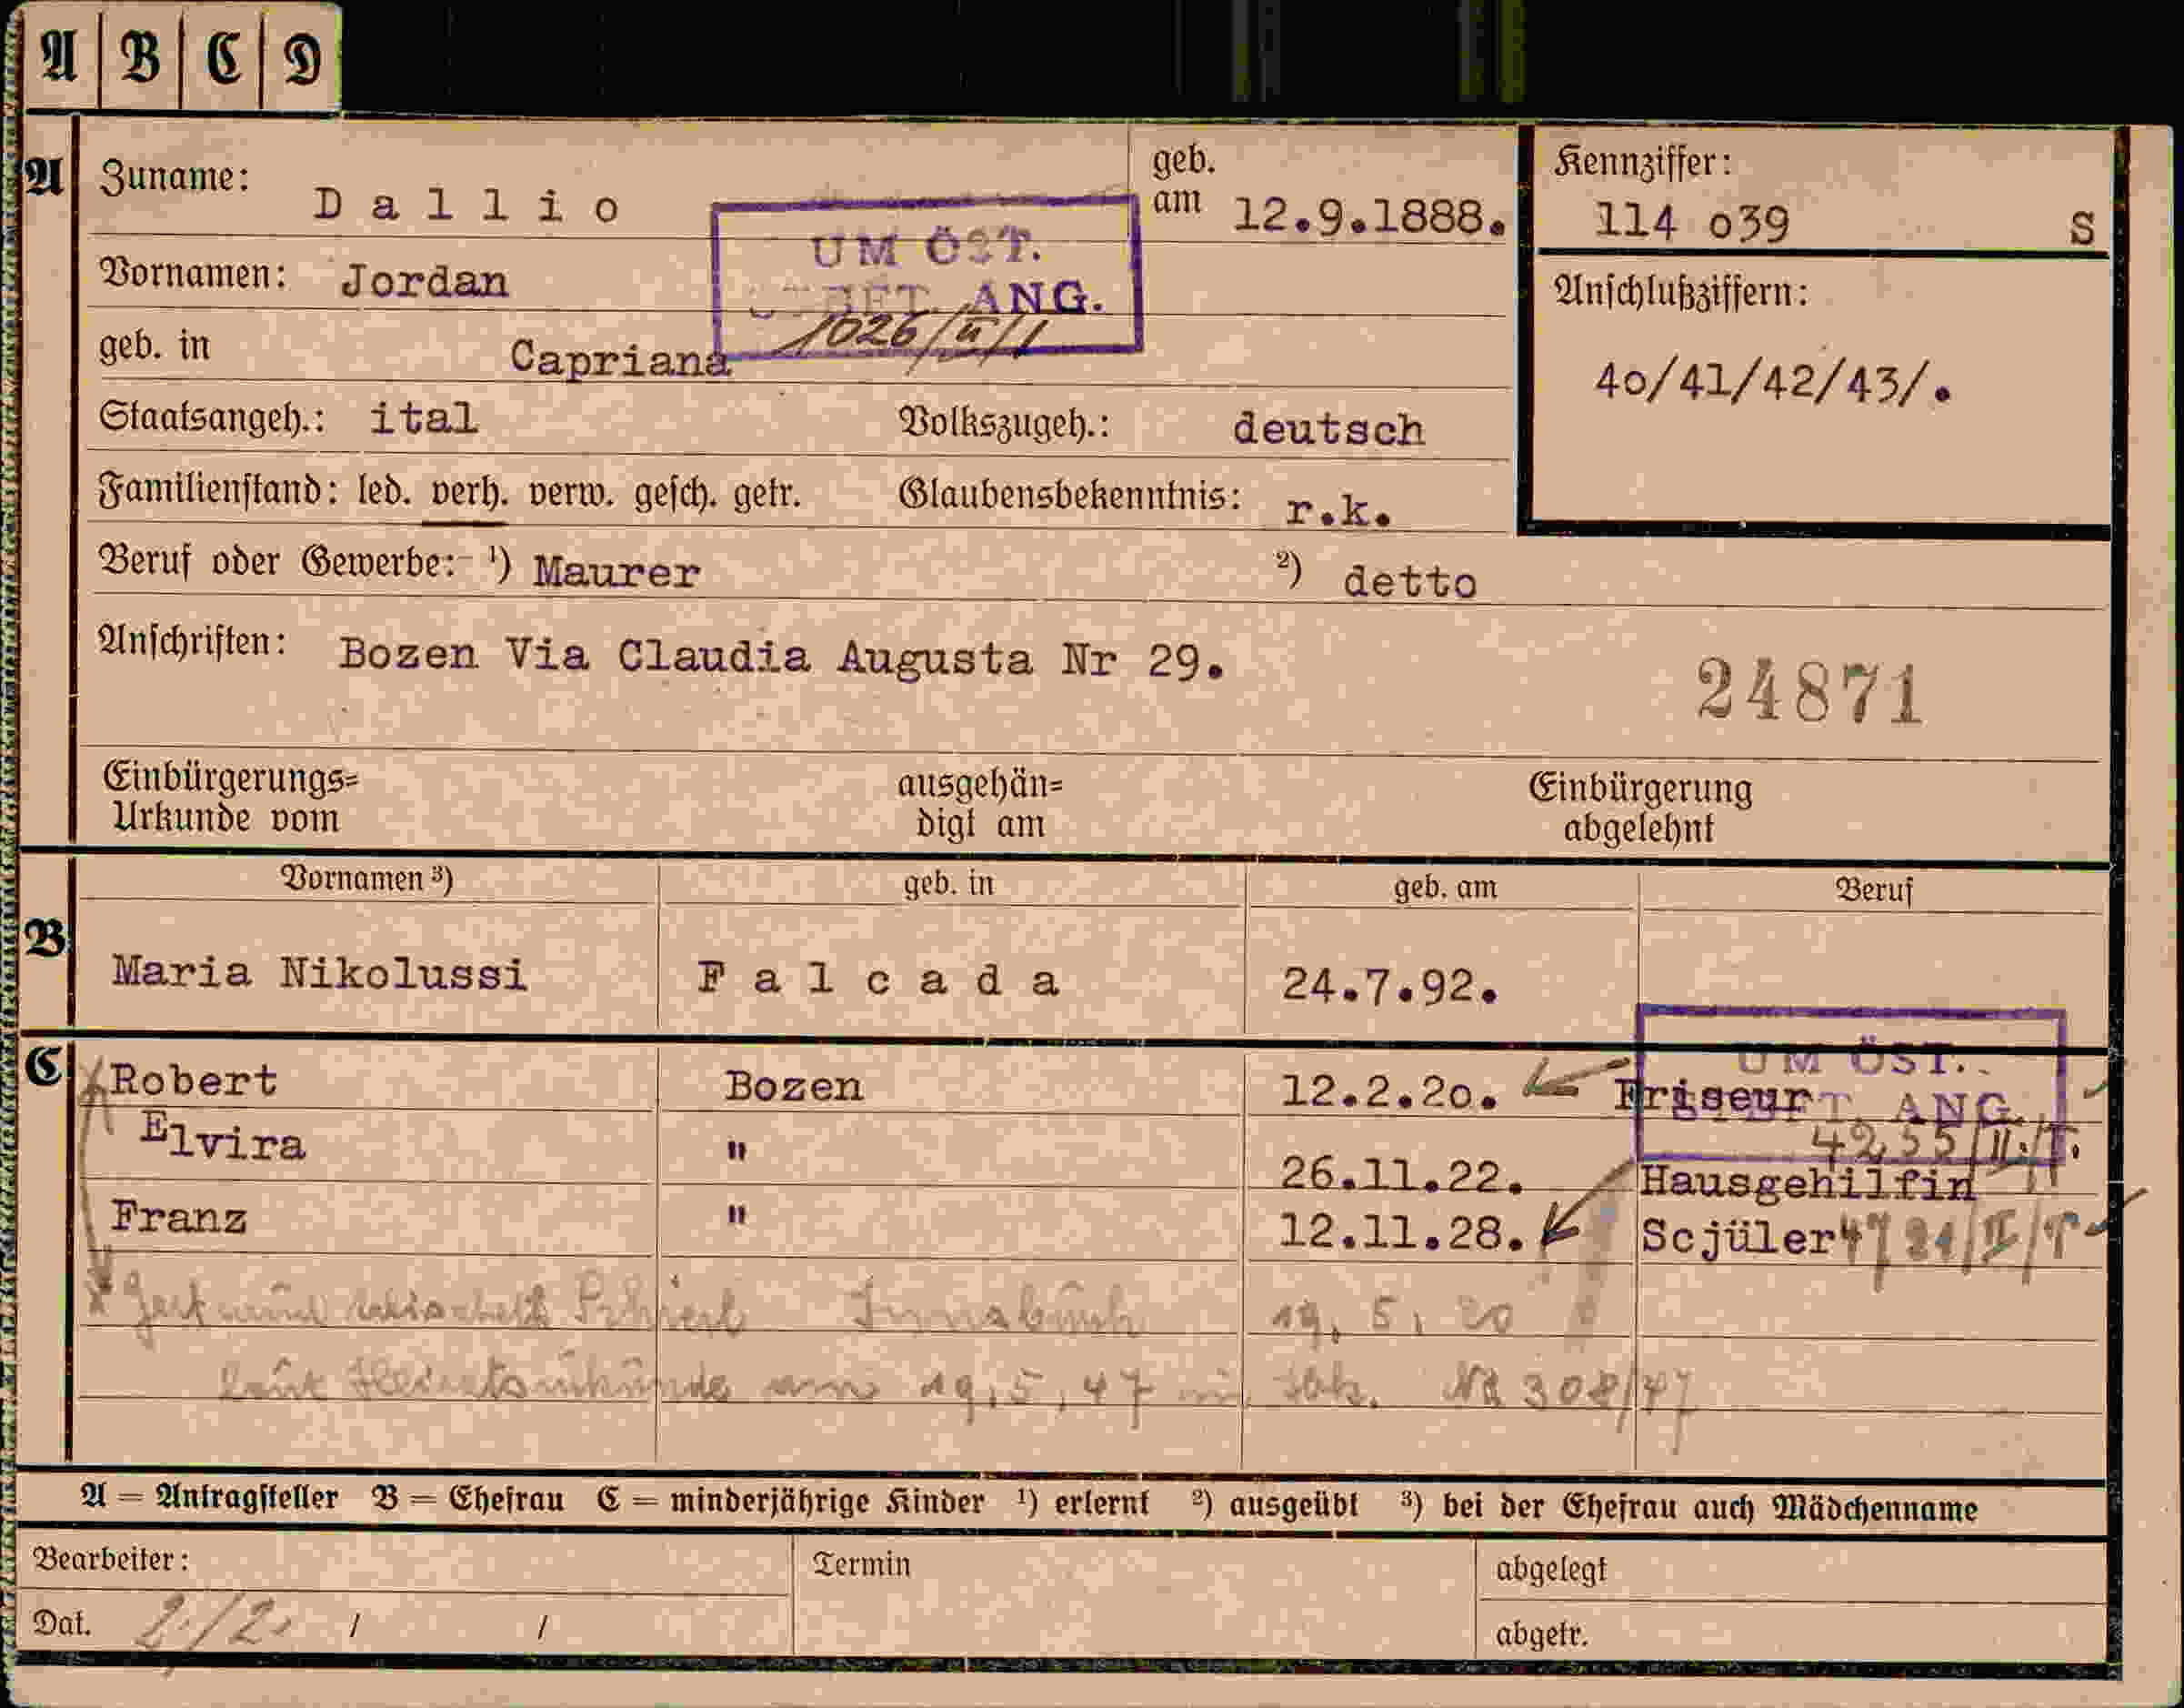 A B C D
A Zuname: Dallio geb. am 12.9.1888. Kennziffer: 114 o39 S
UM ÖST.
ANG.
1026/II/1
Vornamen: Jordan
Anschlußziffern:
40/41/42/43/.
geb. in Capriana
Staatsangeh.: ital Volkszugeh.: deutsch
Familienstand: led. verh. verw. gesch. getr. Glaubensbekenntnis: r.k.
Beruf oder Gewerbe: ¹) Maurer ²) detto
Anschriften: Bozen Via Claudia Augusta Nr 29.
24871
Einbürgerungs= ausgehän= Einbürgerung
Urkunde vom digt am abgelehnt
Vornamen ³) geb. in geb. am Beruf
B Maria Nikolussi Falcada 24.7.92.
UM ÖST.
ANG.
C Robert Bozen 12.2.20. Friseur
Elvira " 26.11.22. Hausgehilfin
Franz " 12.11.28. Scjüler
Innsbruck 19.5.20
laut Heiratsurkunde am 19.5.47 Nr 308/47
A = Antragsteller B = Ehefrau C = minderjährige Kinder ¹) erlernt ²) ausgeübt ³) bei der Ehefrau auch Mädchenname
Bearbeiter: Termin abgelegt
Dat. 2./2. / / abgetr.